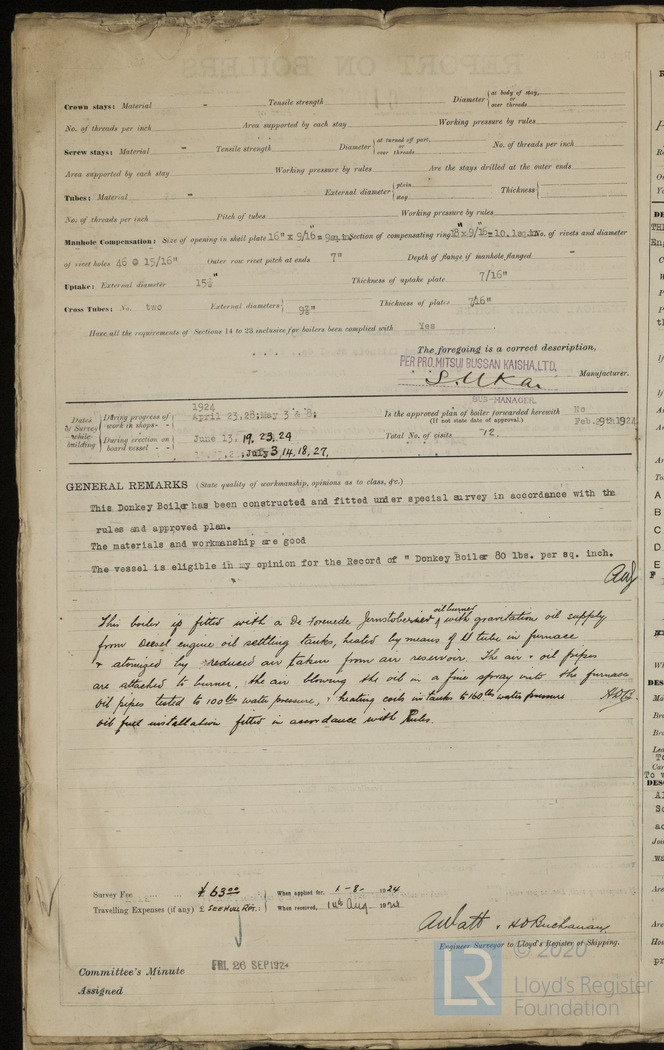 Crown stays: Material - Tensile strength Diameter { at body of stay, or over threads
No. of threads per inch Area supported by each stay Working pressure by rules
Screw stays: Material - Tensile strength Diameter { at turned off part, or over threads No. of threads per inch
Area supported by each stay Working pressure by rules Are the stays drilled at the outer ends
Tubes: Material External diameter { plain stay Thickness {
No. of threads per inch Pitch of tubes Working pressure by rules
Manhole Compensation: Size of opening in shell plate 16" x 9/16"= 9sq.in. Section of compensating ring 18"x 9/16=10.1sq.in. No. of rivets and diameter
of rivet holes 46 @ 15/16" Outer row rivet pitch at ends 7" Depth of flange if manhole flanged -
Uptake: External diameter 15½" Thickness of uptake plate 7/16"
Cross Tubes: No. two External diameters { 9¾" Thickness of plates 7/16"
Have all the requirements of Sections 14 to 23 inclusive for boilers been complied with Yes
The foregoing is a correct description,
PER PRO. MITSUI BUSSAN KAISHA, LTD.
Manufacturer.
SUB-MANAGER.
Dates of Survey while building
During progress of work in shops - - 1924 April 23.28; May 3 & 8;
During erection on board vessel - - June 13. 19, 23.24 July 3, 14, 18, 27,
Is the approved plan of boiler forwarded herewith No
(If not state date of approval.) Feb. 29th 1924
Total No. of visits 12.
GENERAL REMARKS (State quality of workmanship, opinions as to class, &c.)
This Donkey Boiler has been constructed and fitted under special survey in accordance with the
rules and approved plan.
The materials and workmanship are good
The vessel is eligible in my opinion for the Record of " Donkey Boiler 80 lbs. per sq. inch.
This boiler is fitted with a De oil burner with gravitation oil supply
from Diesel engine oil settling tanks, heated by means of U tube in furnace
& atomized by reduced air taken from air reservoir. The air & oil pipes
are attached to burner, the air blowing the oil in a fine spray into the furnace
Oil pipes tested to 100 lbs water pressure, & heating coils in tanks to 160 lbs water pressure
Oil fuel installation fitted in accordance with Rules.
Survey Fee ... £ 63.00 When applied for, 1-8- 1924
Travelling Expenses (if any) £ See Hull Rpt. When received, 14th Aug 1924
AWatt & H.D. Buchanan
Engineer Surveyor to Lloyd's Register of Shipping.
Committee's Minute FRI. 26 SEP 1924
Assigned
LR © 2020
Lloyd's Register
Foundation